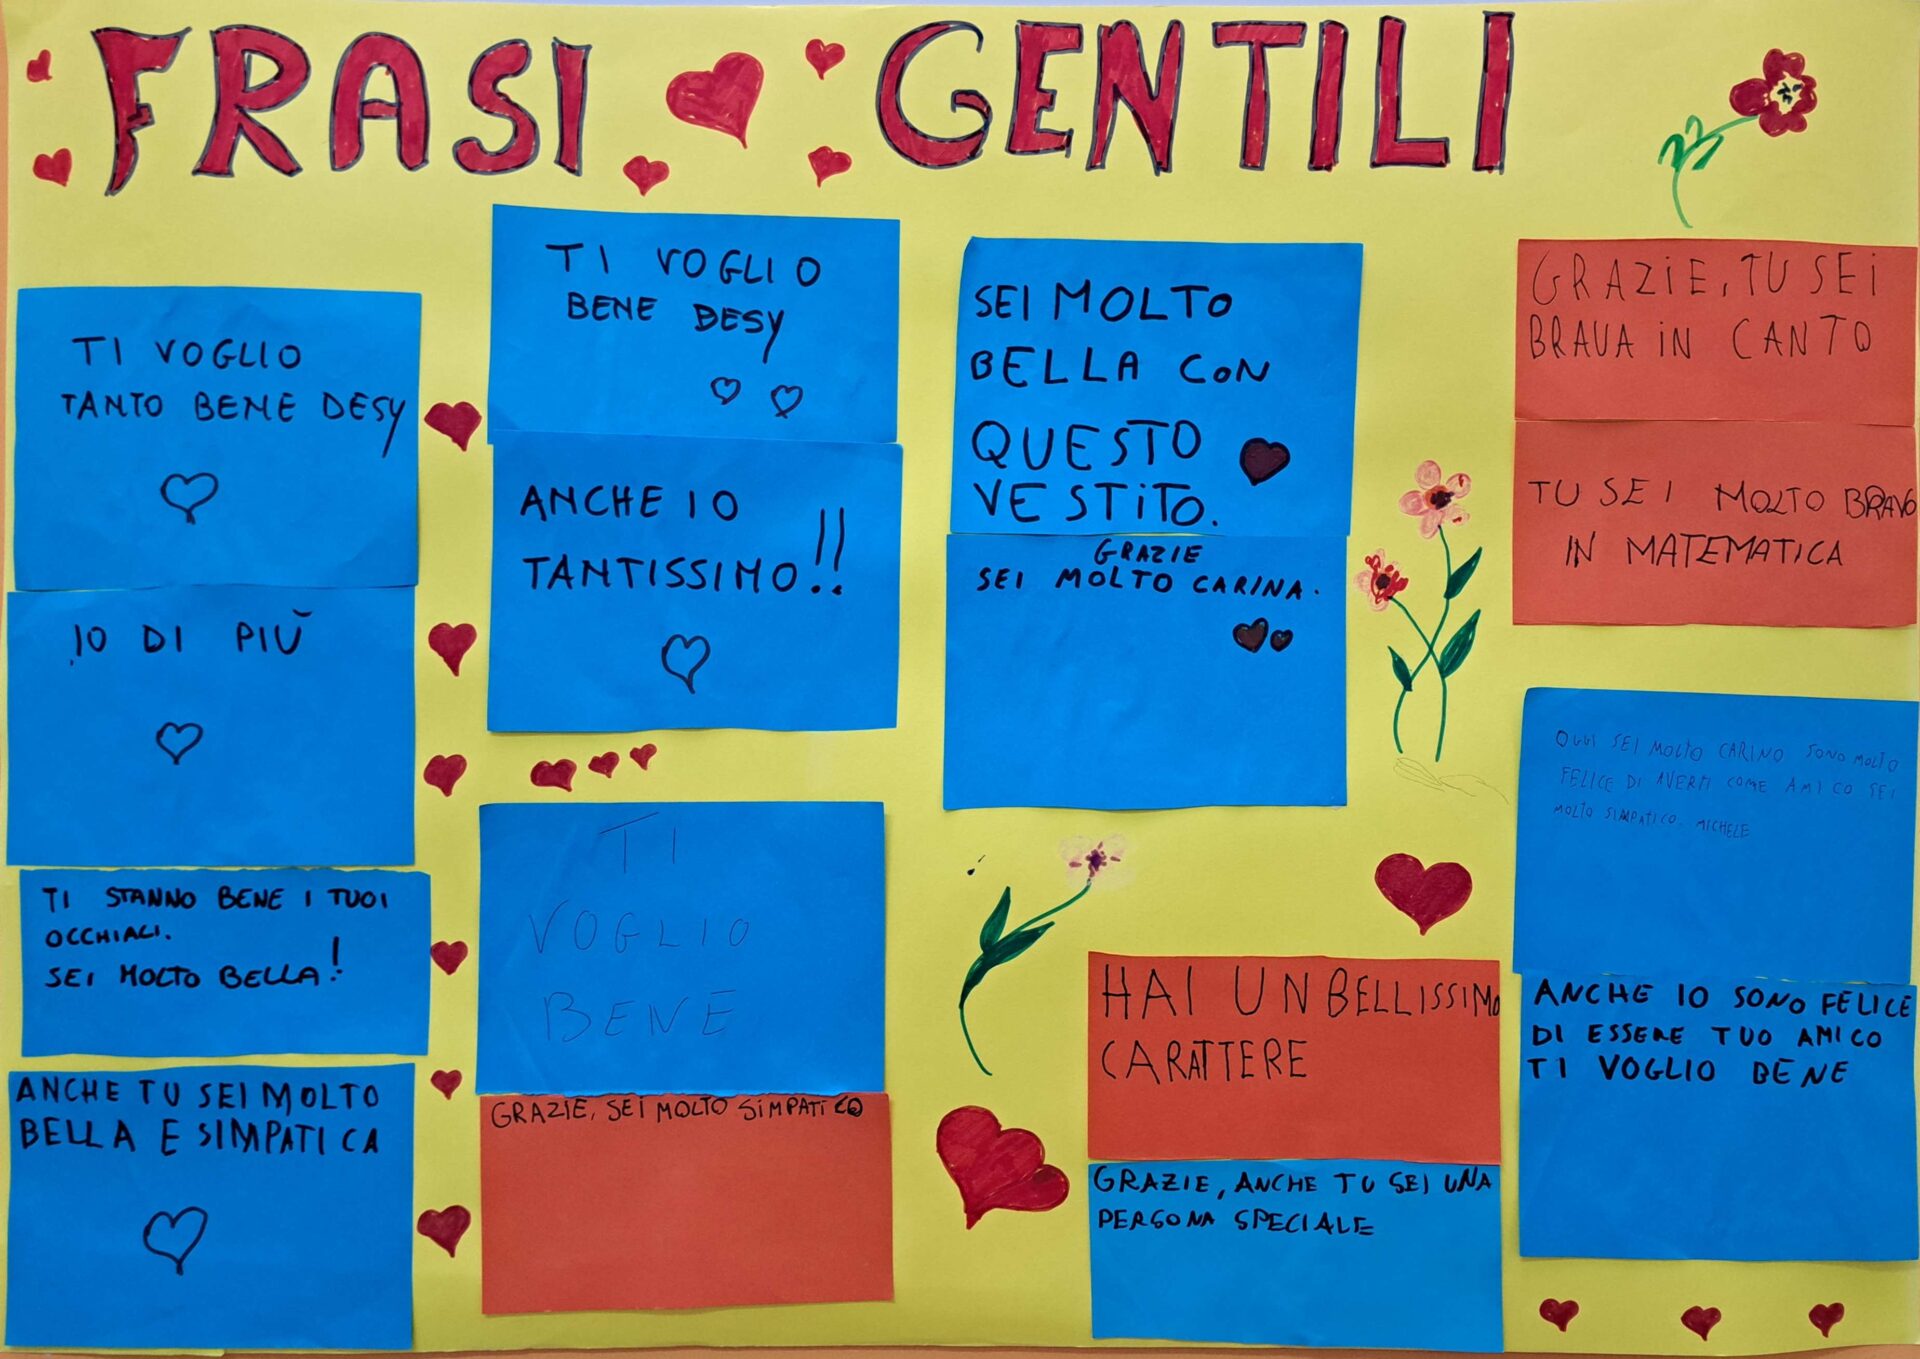 FRASI GENTILI
TI VOGLIO
TANTO BENE DESY
IO DI PIÙ
TI STANNO BENE I TUOI
OCCHIALI.
SEI MOLTO BELLA!
ANCHE TU SEI MOLTO
BELLA E SIMPATICA
TI VOGLIO
BENE DESY
ANCHE IO
TANTISSIMO!!
TI
VOGLIO
BENE
GRAZIE, SEI MOLTO SIMPATICO
SEI MOLTO
BELLA CON
QUESTO
VESTITO.
GRAZIE
SEI MOLTO CARINA.
HAI UN BELLISSIMO
CARATTERE
GRAZIE, ANCHE TU SEI UNA
PERSONA SPECIALE
GRAZIE, TU SEI
BRAVA IN CANTO
TU SEI MOLTO BRAVO
IN MATEMATICA
OGGI SEI MOLTO CARINO SONO MOLTO
FELICE DI AVERTI COME AMICO SEI
MOLTO SIMPATICO. MICHELE
ANCHE IO SONO FELICE
DI ESSERE TUO AMICO
TI VOGLIO BENE